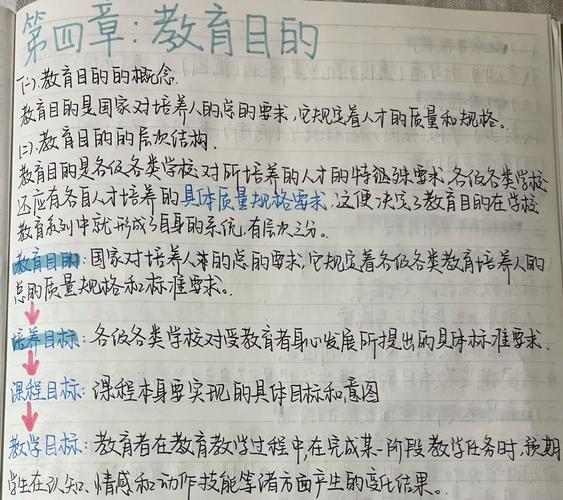 第四章:教育目的
(一).教育目的的概念.
教育目的是国家对培养人的总的要求,它规定着人才的质量和规格。
(二).教育目的的层次结构.
教育目的是各级各类学校对所培养的人才的特殊要求,各级各类学校
还应有各自人才培养的具体质量规格要求,这便决定了教育目的在学校
教育系列中就形成了自身的系统,有层次之分。
教育目的:国家对培养人才的总的要求,它规定着各级各类教育培养人的
总的质量规格和标准要求。
培养目标:各级各类学校对受教育者身心发展所提出的具体标准要求.
课程目标:课程本身要实现的具体目标和意图
教学目标:教育者在教育教学过程中,在完成某一阶段教学任务时,预期
学生在认知、情感和动作技能等诸方面产生的变化结果。